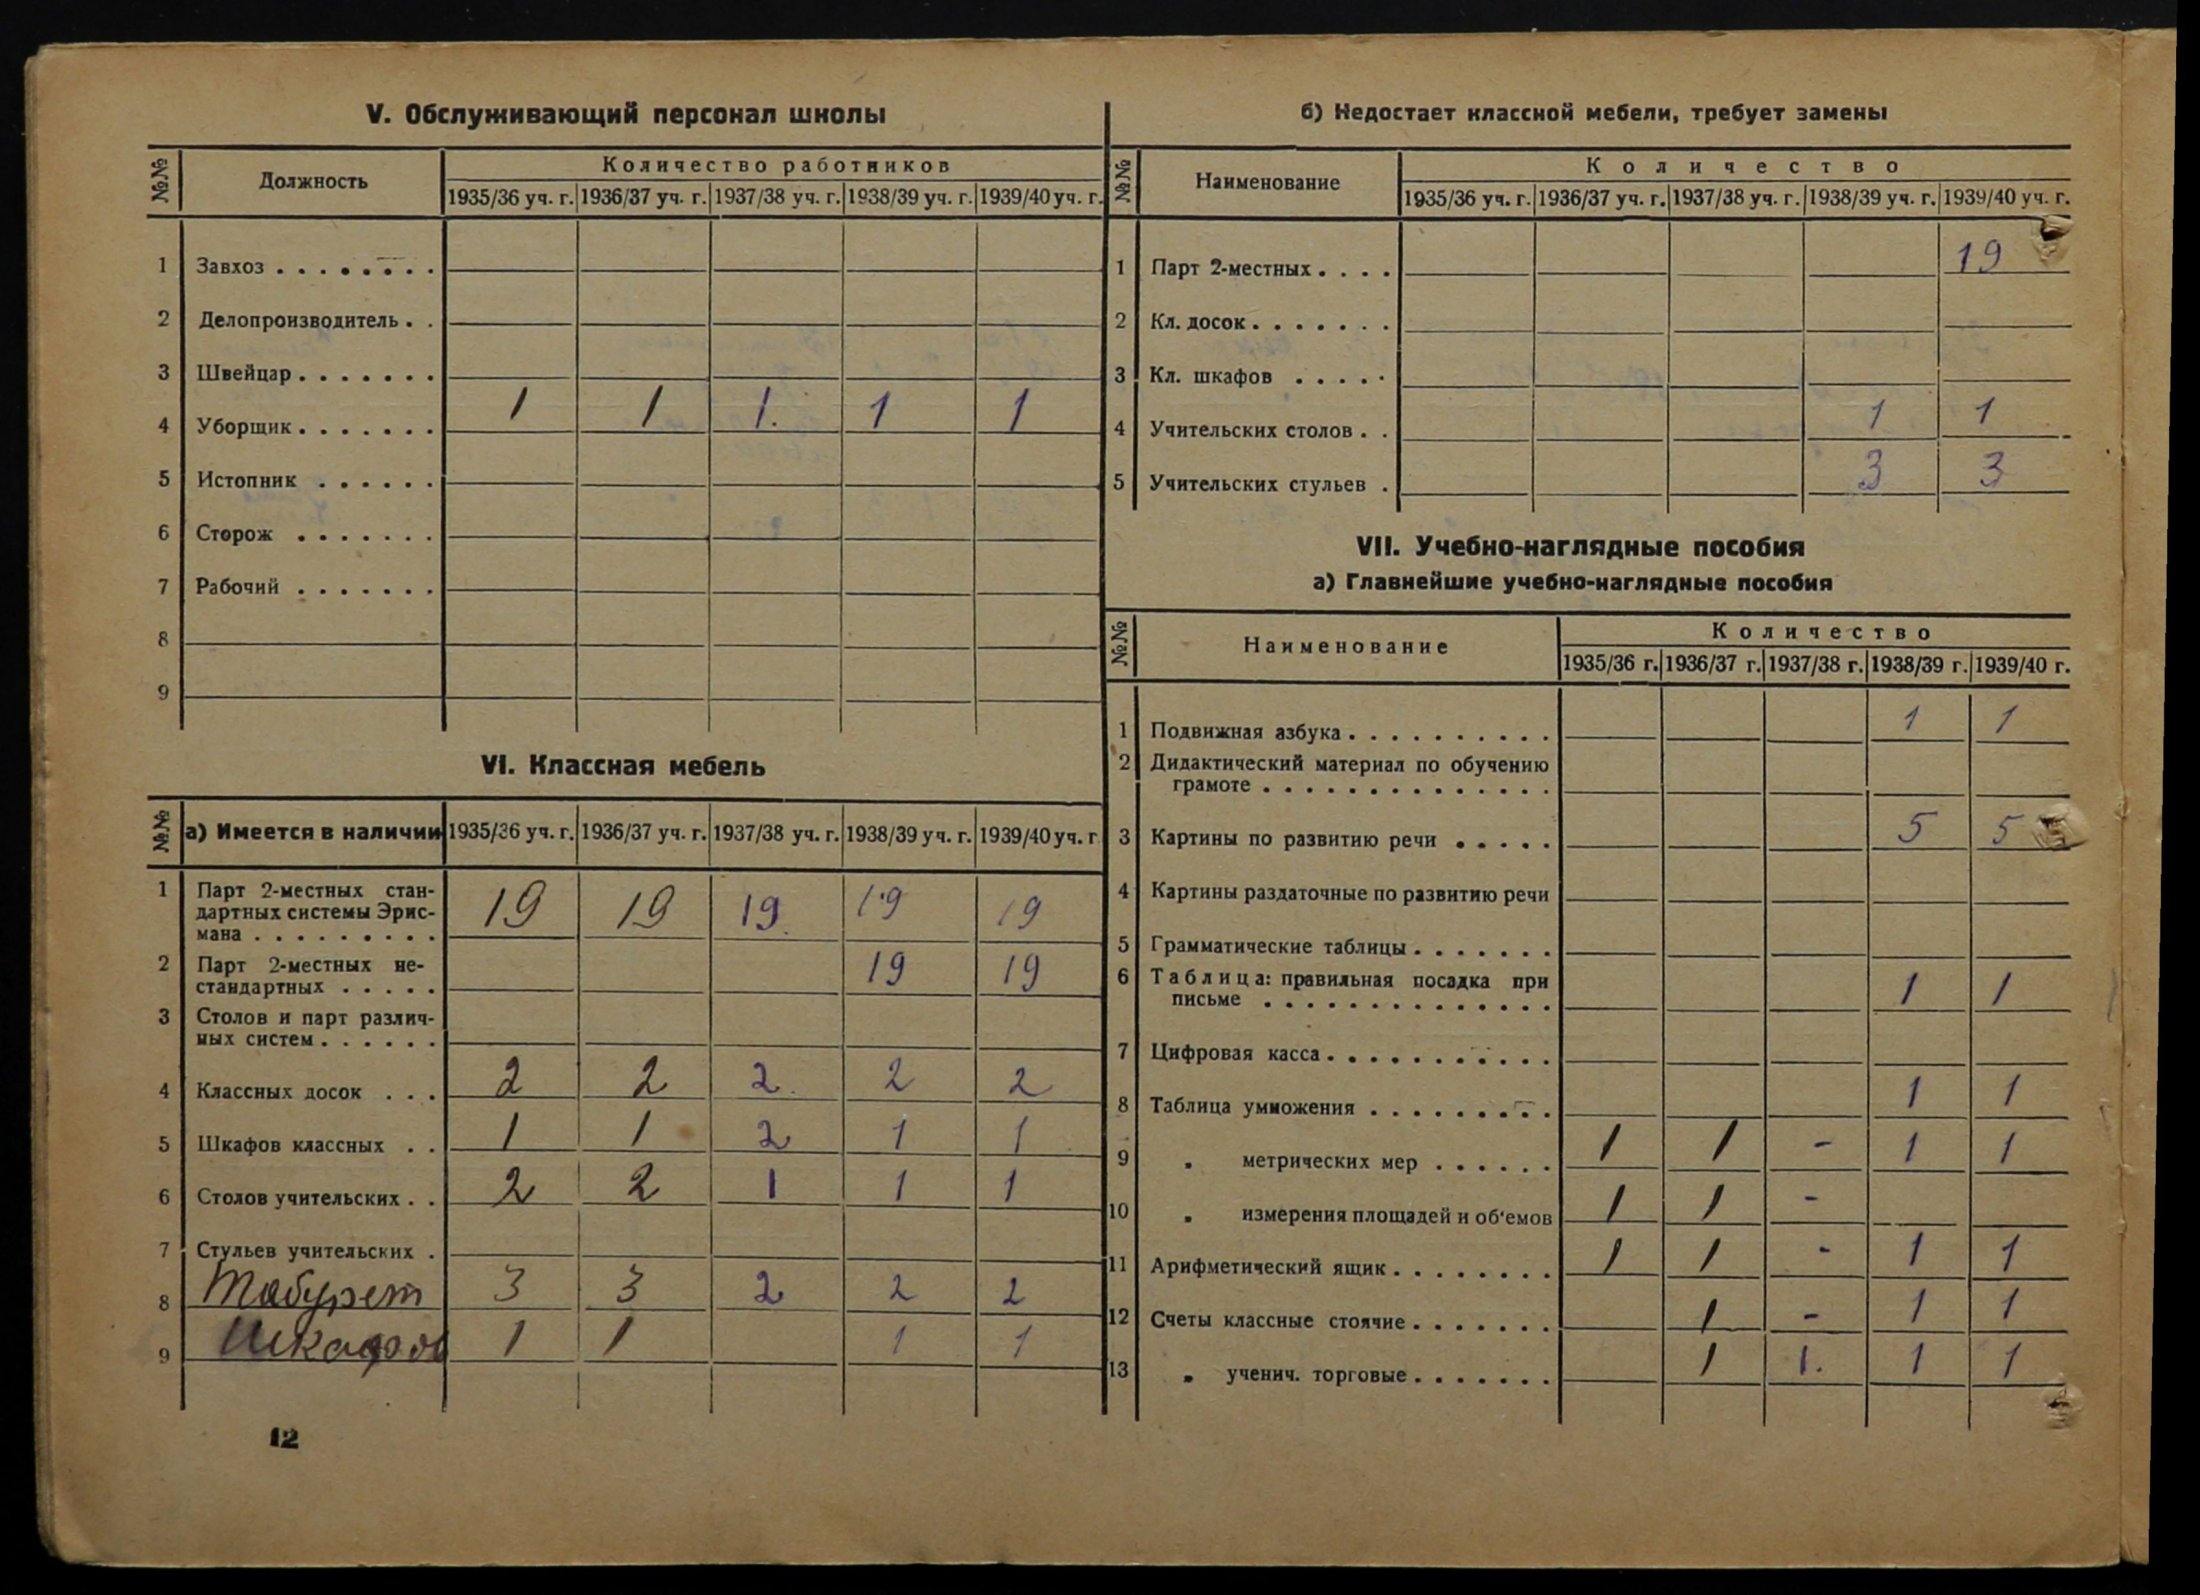 V. Обслуживающий персонал школы
№№ Должность Количество работников
1935/36 уч. г. 1936/37 уч. г. 1937/38 уч. г. 1938/39 уч. г. 1939/40 уч. г.
1 Завхоз . . . . . . . .
2 Делопроизводитель . .
3 Швейцар . . . . . . .
4 Уборщик . . . . . . . 1 1 1. 1 1
5 Истопник . . . . . .
6 Сторож . . . . . . .
7 Рабочий . . . . . . .
8
9
VI. Классная мебель
№№ а) Имеется в наличии 1935/36 уч. г. 1936/37 уч. г. 1937/38 уч. г. 1938/39 уч. г. 1939/40 уч. г
1 Парт 2-местных стан-
дартных системы Эрис-
мана . . . . . . . . . 19 19 19. 19 19
2 Парт 2-местных не-
стандартных . . . . . 19 19
3 Столов и парт различ-
ных систем . . . . . .
4 Классных досок . . . 2 2 2. 2 2
5 Шкафов классных . . 1 1 2 1 1
6 Столов учительских . . 2 2 1 1 1
7 Стульев учительских .
8 Табурет 3 3 2 2 2
9 Шкафов 1 1 1 1
12
б) Недостает классной мебели, требует замены
№№ Наименование Количество
1935/36 уч. г. 1936/37 уч. г. 1937/38 уч. г. 1938/39 уч. г. 1939/40 уч. г.
1 Парт 2-местных . . . . 19
2 Кл. досок . . . . . . .
3 Кл. шкафов . . . . .
4 Учительских столов . . 1 1
5 Учительских стульев . 3 3
VII. Учебно-наглядные пособия
а) Главнейшие учебно-наглядные пособия
№№ Наименование Количество
1935/36 г. 1936/37 г. 1937/38 г. 1938/39 г. 1939/40 г.
1 Подвижная азбука . . . . . . . . . . 1 1
2 Дидактический материал по обучению
грамоте . . . . . . . . . . . . . .
3 Картины по развитию речи . . . . . 5 5
4 Картины раздаточные по развитию речи
5 Грамматические таблицы . . . . . . .
6 Таблица: правильная посадка при
письме . . . . . . . . . . . . . . 1 1
7 Цифровая касса . . . . . . . . . . .
8 Таблица умножения . . . . . . . . . 1 1
9 „ метрических мер . . . . . . 1 1 - 1 1
10 „ измерения площадей и об'емов 1 1 -
11 Арифметический ящик . . . . . . . . 1 1 - 1 1
12 Счеты классные стоячие . . . . . . . 1 - 1 1
13 „ ученич. торговые . . . . . . . 1 1. 1 1